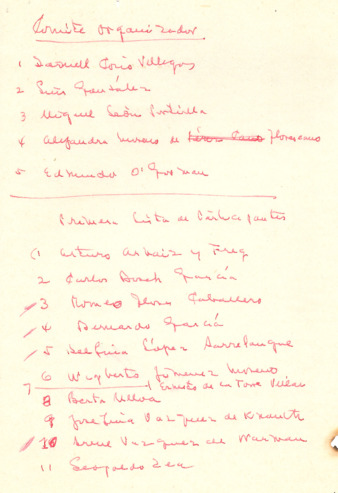 Comité Organizador.
1 Daniell Cosío Villegas
2 Luis González
3 Miguel León Portilla
4 Alejandra Moreno de Florescano
5 Edmundo O'Gorman
Primera Lista de Participantes
1 Arturo Arnaiz y Freg
2 Carlos Bosch García
3 Romeo Flores Caballero
4 Bernardo García
5 Delfina López Sarrelangue
6 Wigberto Jiménez Moreno
7 Ernesto de la Torre Villar
8 Berta Ulloa
9 Josefina Vázquez de Knauth
10 Irene Vazquez de Warman
11 Leopoldo Zea